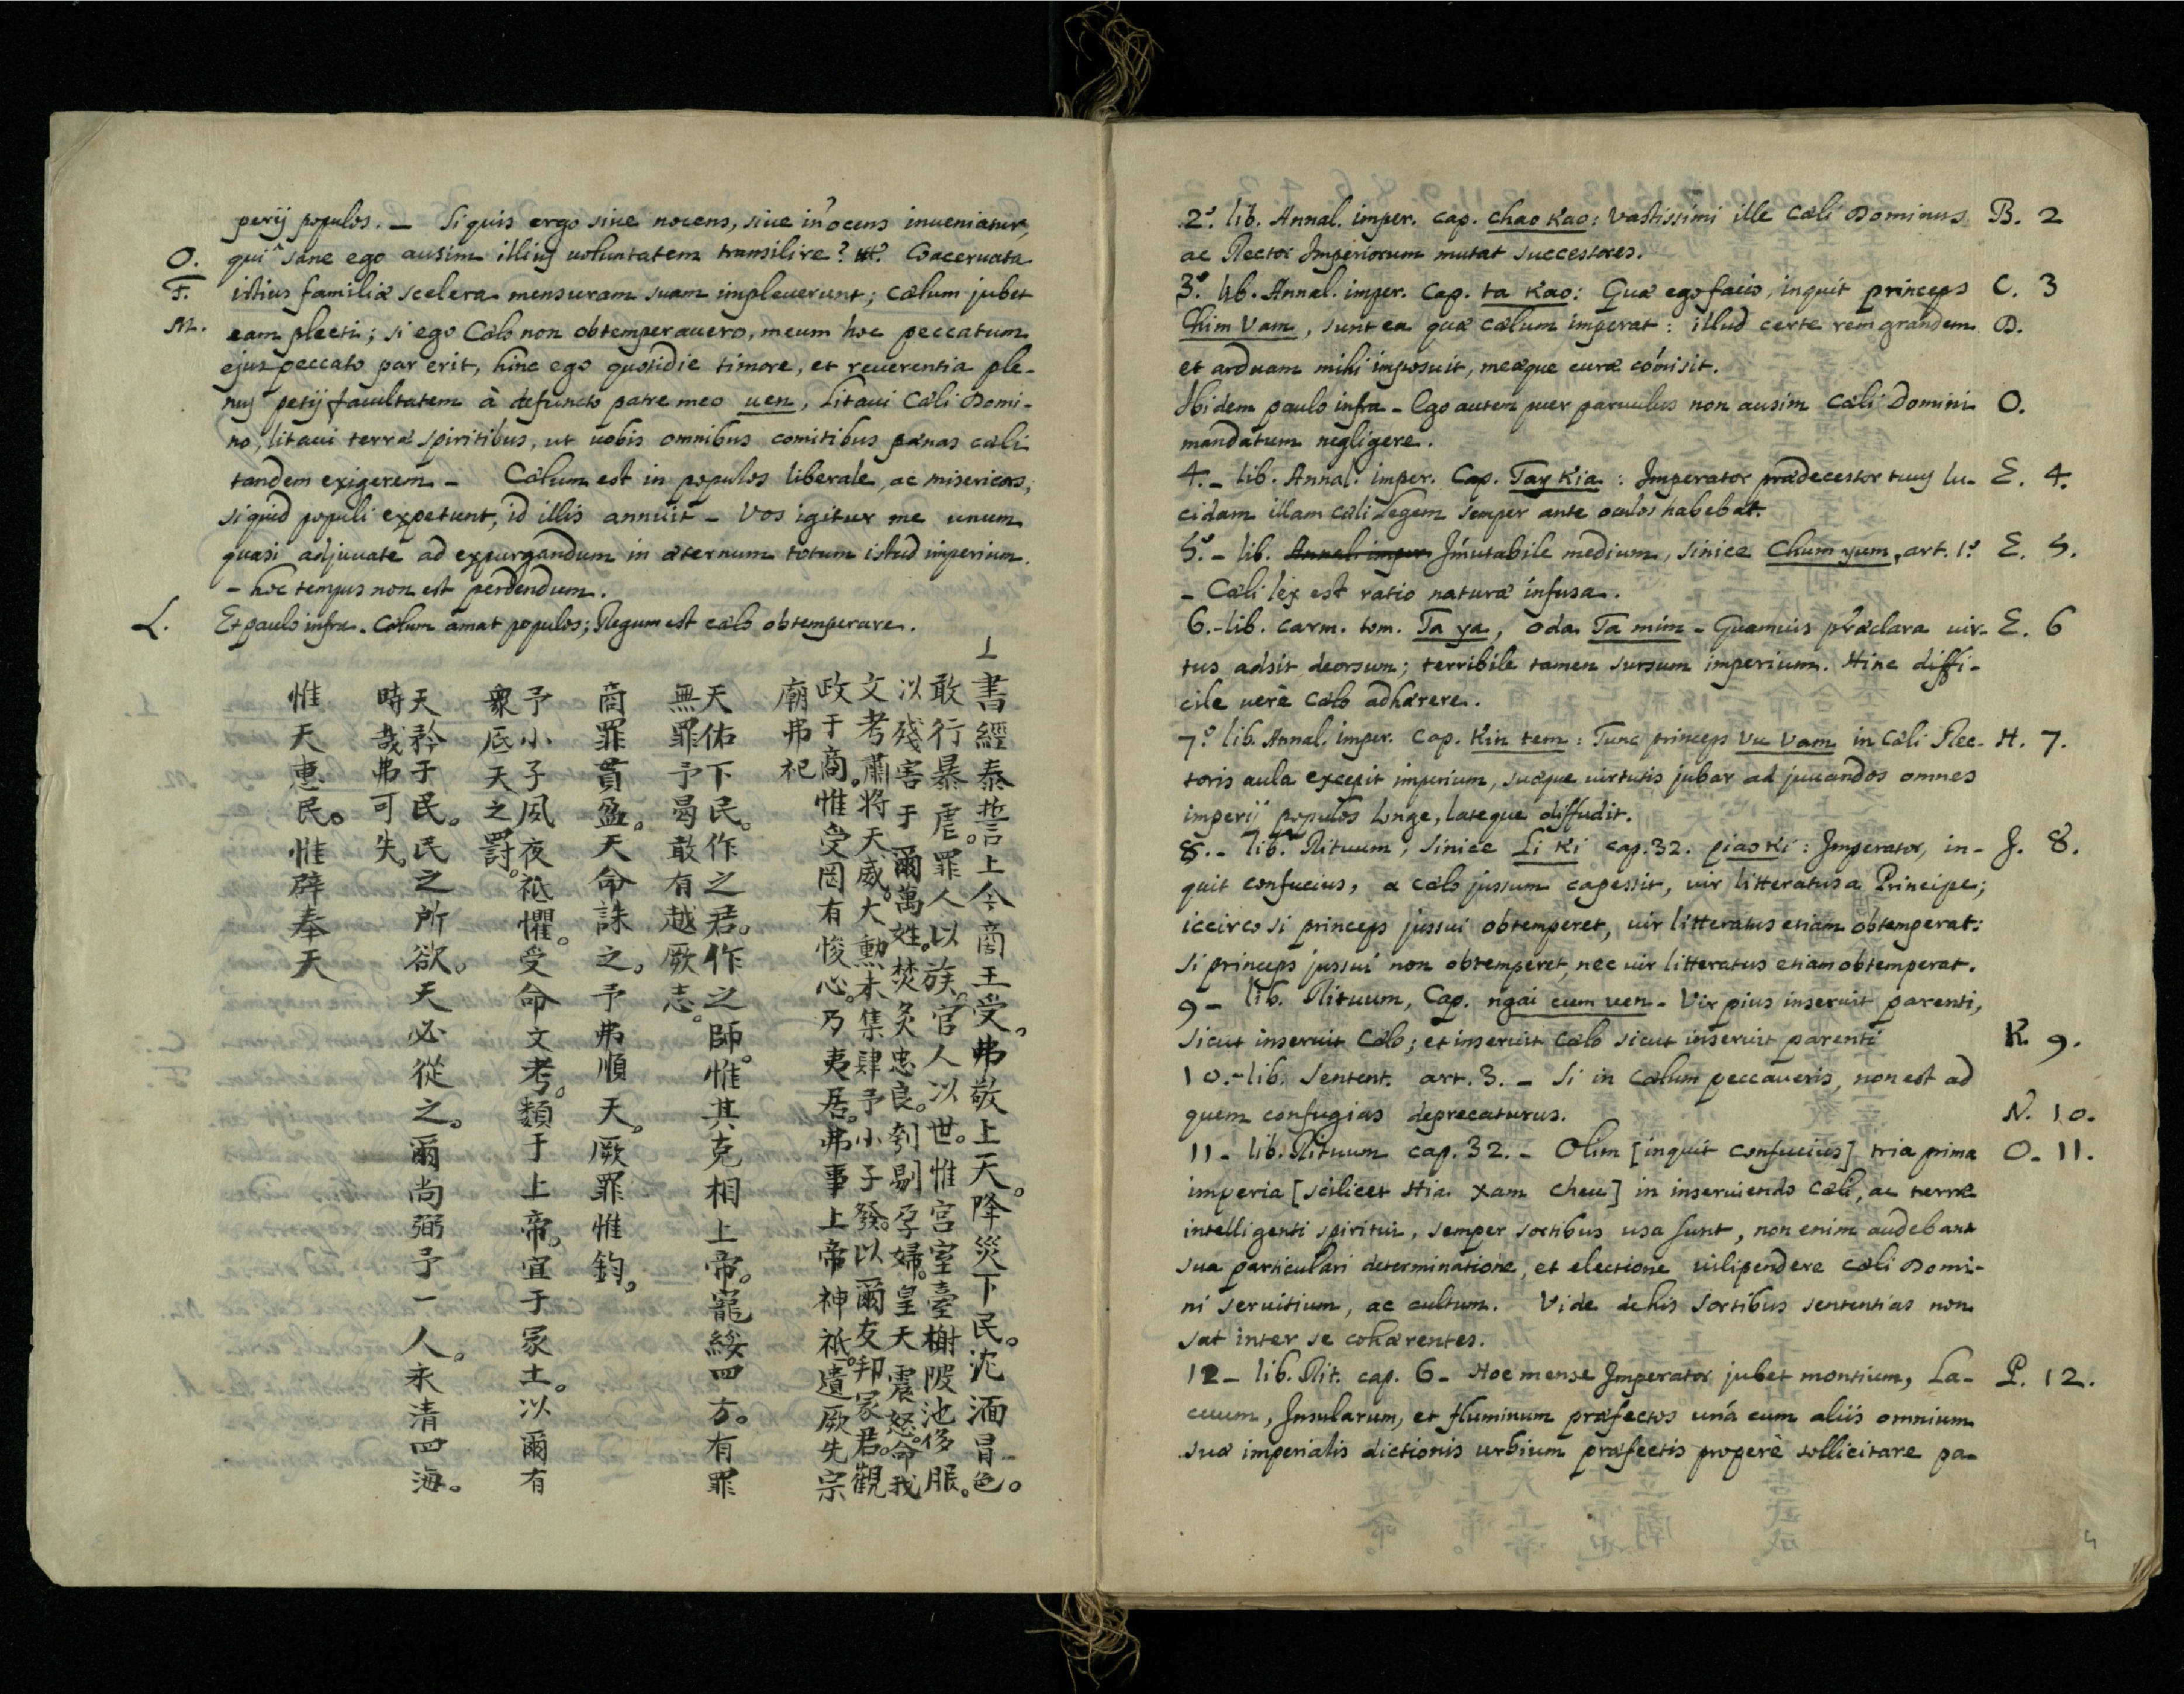 perij populos. – Si quis ergo sive nocens, sive in'ocens inveniatur,
O. qui sane ego ausim illius voluntatem transilire? Coacervata
F. istius familiæ scelera mensuram suam impleverunt; cælum jubet
M. eam plecti; si ego Cælo non obtemperavero, meum hoc peccatum
ejus peccato par erit, hinc ego quotidie timore, et reverentia ple-
nus petij facultatem à defuncto patre meo uen, Litavi Cæli Domi-
no, litavi terræ spiritibus, ut vobis omnibus comitibus pænas cæli
tandem exigerem – Cælum est in populos liberale, ac misericors,
siquid populi expetunt, id illis annuit – Vos igitur me unum
quasi adjuvate ad expurgandum in æternum totum istud imperium.
– hoc tempus non est perdendum.
L. Et paulo infra. Cælum amat populos; Regum est cælo obtemperare.
1 書經泰誓上今商王受。弗敬上天。降災下民。沈湎冒色。
敢行暴虐。罪人以族。官人以世。惟宮室臺榭陂池侈服。
以殘害于爾萬姓。焚炙忠良。刳剔孕婦。皇天震怒。命我
文考肅將天威。大勲未集肆予小子發。以爾友邦冢君。觀
政于商。惟受罔有悛心。乃夷居。弗事上帝神祇。遺厥先宗
廟弗祀
天佑下民。作之君。作之師。惟其克相上帝。寵綏四方。有罪
無罪予曷敢有越厥志。
商罪貫盈。天命誅之。予弗順天。厥罪惟鈞。
予小子夙夜祗懼。受命文考。類于上帝。宜于冢土。以爾有
衆底天之罰。
天矜于民。民之所欲。天必從之。爾尚弼予一人。永清四海。
時哉弗可失。
惟天惠民。惟辟奉天
2.º lib. Annal. imper. cap. chao Kao: Vastissimi ille Cæli Dominus B. 2
ac Rector Imperiorum mutat successores.
3.º lib. Annal. imper. Cap. ta Kao: Quæ ego facio, inquit princeps C. 3
Chim Vam, sunt ea quæ cælum imperat: illud certe rem grandem D.
et arduam mihi imposuit, meæque curæ cómisit.
Ibidem paulo infra – Ego autem puer parvulus non ausim Cæli Domini O.
mandatum negligere.
4. – lib. Annal. imper. Cap. Tay Kia: Imperator prædecessor tuus lu- E. 4.
cidam illam cæli legem semper ante oculos habebat.
5.º – lib. Annal. imper. Im̃utabile medium, sinice Chum yum, art. 1.º E. 5.
– Cæli lex est ratio naturæ infusa.
6. – lib. carm. tom. Ta ya, oda Ta mim – Quamvis præclara vir- E. 6
tus adsit deorsum; terribile tamen sursum imperium. Hinc diffi-
cile verè Cælo adhærere.
7.º lib. Annal. imper. Cap. Kin tem: Tunc princeps Vu Vam in Cæli Rec- H. 7.
toris aula excepit imperium, suæque virtutis jubar ad juvandos omnes
imperij populos longe, lateque diffudit.
8. – lib. Rituum, sinice Li Ki cap. 32. piao Ki: Imperator, in- J. 8.
quit confucius, a cælo jussum capessit, vir litteratus a Principe;
iccirco si princeps jussui obtemperet, vir litteratus etiam obtemperat:
si princeps jussui non obtemperet, nec vir litteratus etiam obtemperat.
9 – lib. Rituum, Cap. ngai cum uen – Vir pius inservit parenti,
sicut inservit Cælo; et inservit Cælo sicut inservit parenti K. 9.
10. – lib. Sentent. art. 3. – Si in Cælum peccaveris, non est ad
quem confugias deprecaturus. N. 10.
11 – lib. Rituum cap. 32. – Olim [inquit Confucius] tria prima O. 11.
imperia [scilicet Hia Xam Cheu] in inserviendo Cæli, ac terræ
intelligenti spiritui, semper sortibus usa sunt, non enim audebant
sua particulari determinatione, et electione vilipendere Cæli Domi-
ni servitium, ac cultum. Vide de his sortibus sententias non
sat inter se cohærentes.
12 – lib. Rit. cap. 6 – Hoc mense Imperator jubet montium, La- P. 12.
cuum, Insularum, et fluminum præfectos unà cum aliis omnium
suæ imperialis dictionis urbium præfectis properè sollicitare pa-
4